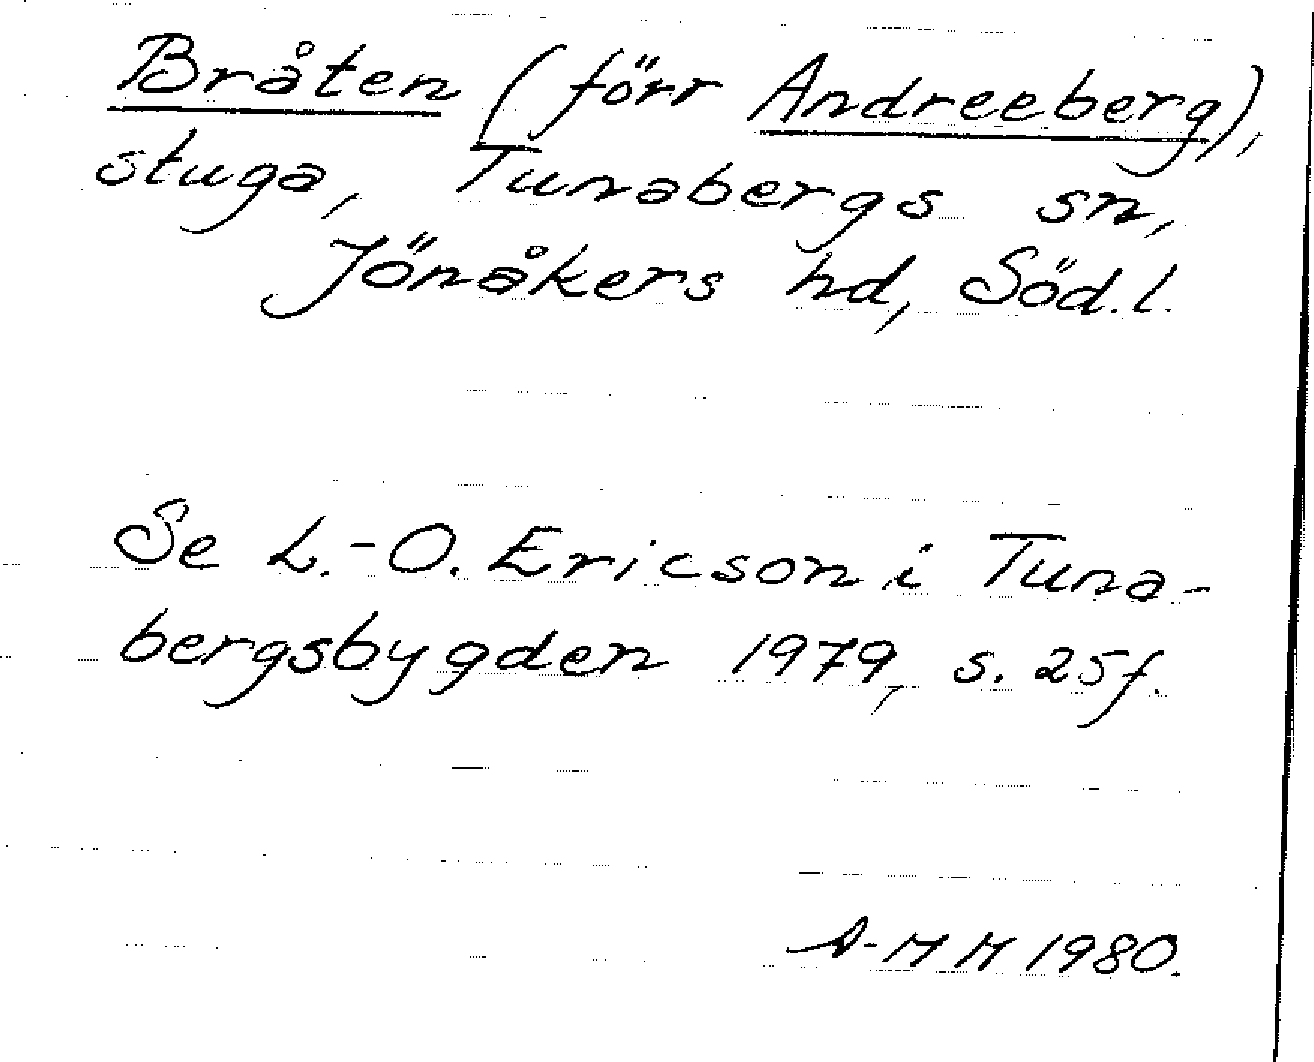 Bråten (förr Andreeberg),
stuga, Tunabergs sn,
Jönåkers hd, Söd.l.
Se L.-O. Ericson i Tuna-
bergsbygden 1979, s. 25f.
A-MH 1980.